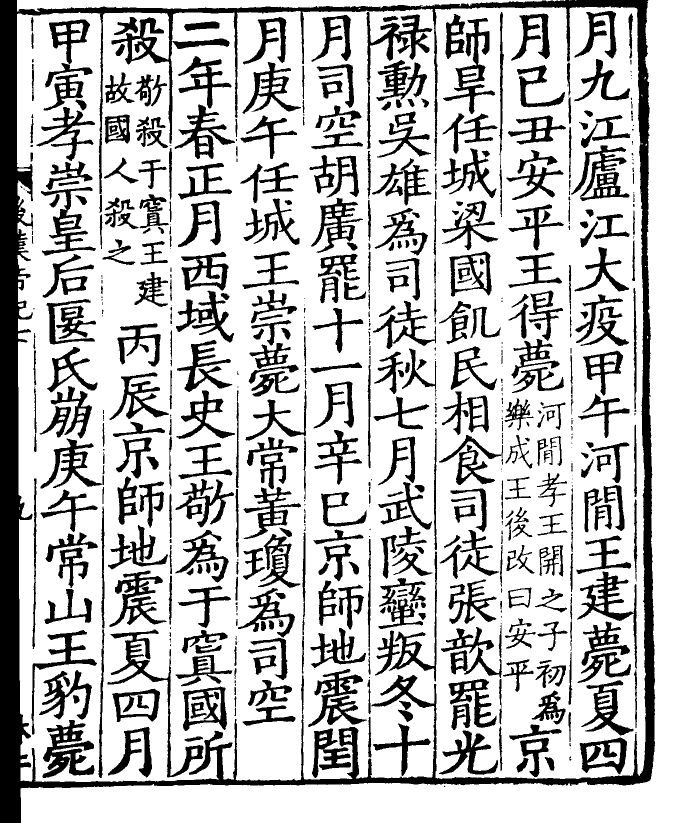 月九江廬江大疫甲午河閒王建薨夏四
月己丑安平王得薨河閒孝王開之子初爲樂成王後改曰安平京
師旱任城梁國飢民相食司徒張歆罷光
禄勲吳雄爲司徒秋七月武陵蠻叛冬十
月司空胡廣罷十一月辛巳京師地震閏
月庚午任城王崇薨大常黃瓊爲司空
二年春正月西域長史王敬爲于窴國所
殺敬殺于窴王建故國人殺之丙辰京師地震夏四月
甲寅孝崇皇后匽氏崩庚午常山王豹薨